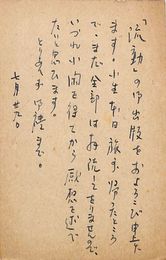 「流動」の御出版をおよろこび申上
ます。小生本日旅から帰つたところ
で、まだ全部は拝読してをりませんが、
いづれ小閑を得てから感想を述べ
たいと思ひます。
とりあへず御礼まで。
七月廿九日